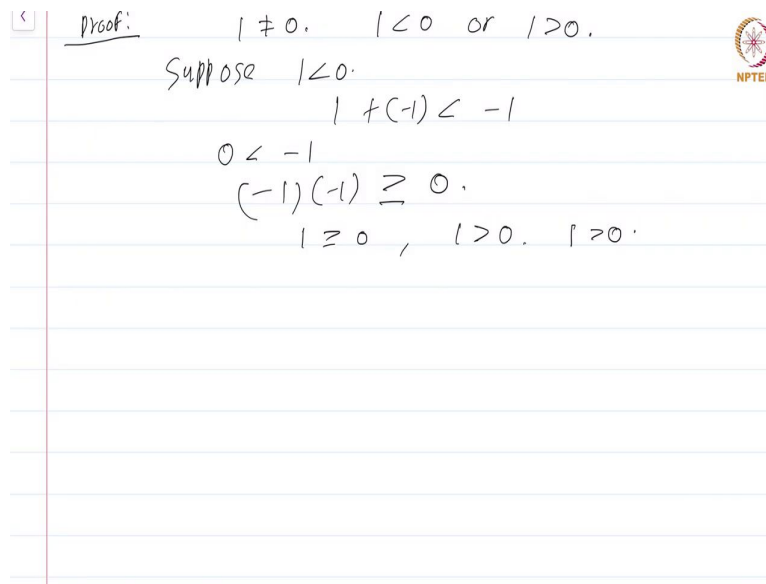 Proof: 1 ≠ 0. 1 < 0 or 1 > 0.
Suppose 1 < 0.
1 + (-1) < -1
0 < -1
(-1)(-1) ≥ 0.
1 ≥ 0, 1 > 0. 1 > 0.
NPTEL